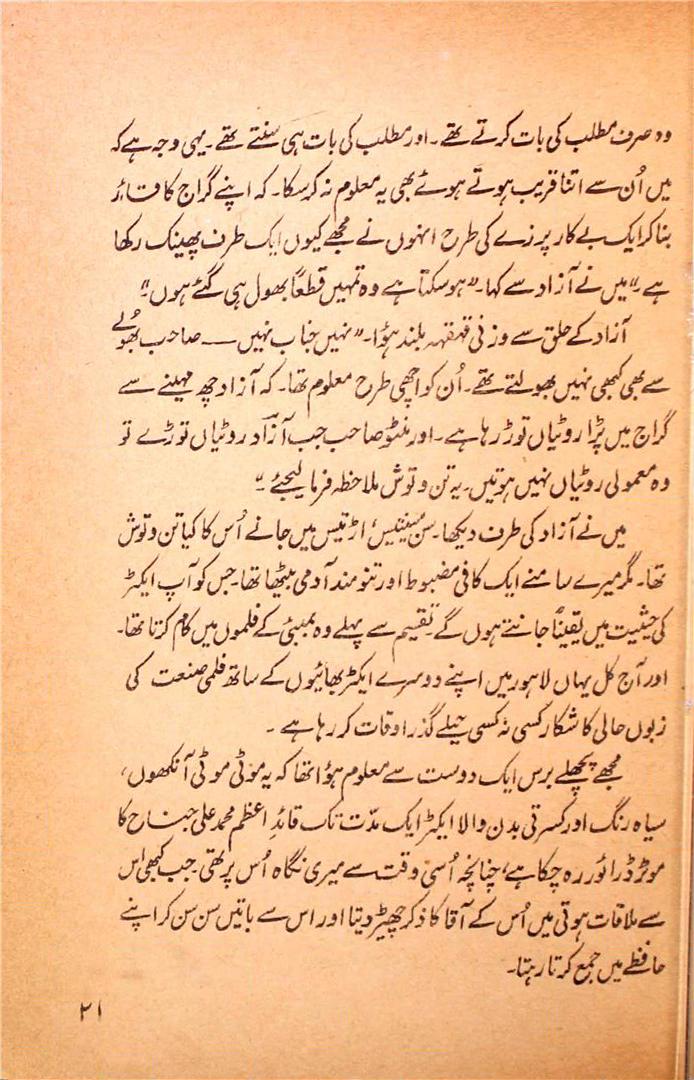 وہ صرف مطلب کی بات کرتے تھے۔ اور مطلب کی بات ہی سنتے تھے۔ یہی وجہ ہے کہ
میں اُن سے اتنا قریب ہوتے ہوئے بھی یہ معلوم نہ کرسکا۔ کہ اپنے گراج کا قائد
بنا کر ایک بے کار پرزے کی طرح انہوں نے مجھے کیوں ایک طرف پھینک رکھا
ہے۔" میں نے آزاد سے کہا۔" ہوسکتا ہے وہ تمہیں قطعاً بھول ہی گئے ہوں۔"
آزاد کے حلق سے وزنی قہقہہ بلند ہؤا۔" نہیں جناب نہیں ــــ صاحب بھُولے
سے بھی کبھی نہیں بھولتے تھے۔ اُن کو اچھی طرح معلوم تھا۔ کہ آزاد چھ مہینے سے
گراج میں پڑا روٹیاں توڑ رہا ہے۔ اور منٹو صاحب جب آزاد روٹیاں توڑے تو
وہ معمولی روٹیاں نہیں ہوتیں۔ یہ تن و توش ملاحظہ فرما لیجئے۔"
میں نے آزاد کی طرف دیکھا۔ سن سینتیس اڑتیس میں جانے اُس کا کیا تن و توش
تھا۔ مگر میرے سامنے ایک کافی مضبوط اور تنومند آدمی بیٹھا تھا۔ جس کو آپ ایکٹر
کی حیثیت میں یقیناً جانتے ہوں گے۔ تقسیم سے پہلے وہ بمبئی کے فلموں میں کام کرتا تھا۔
اور آج کل یہاں لاہور میں اپنے دوسرے ایکٹر بھائیوں کے ساتھ فلمی صنعت کی
زبوں حالی کا شکار کسی نہ کسی حیلے گذر اوقات کر رہا ہے۔
مجھے پچھلے برس ایک دوست سے معلوم ہؤا تھا کہ یہ موٹی موٹی آنکھوں،
سیاہ رنگ اور کسرتی بدن والا ایکٹر ایک مدّت تک قائدِ اعظم محمد علی جناح کا
موٹر ڈرائور رہ چکا ہے، چنانچہ اُسی وقت سے میری نگاہ اُس پر تھی۔ جب کبھی اس
سے ملاقات ہوتی میں اُس کے آقا کا ذکر چھیڑ دیتا اور اس سے باتیں سن سن کر اپنے
حافظے میں جمع کرتا رہتا۔
۲۱